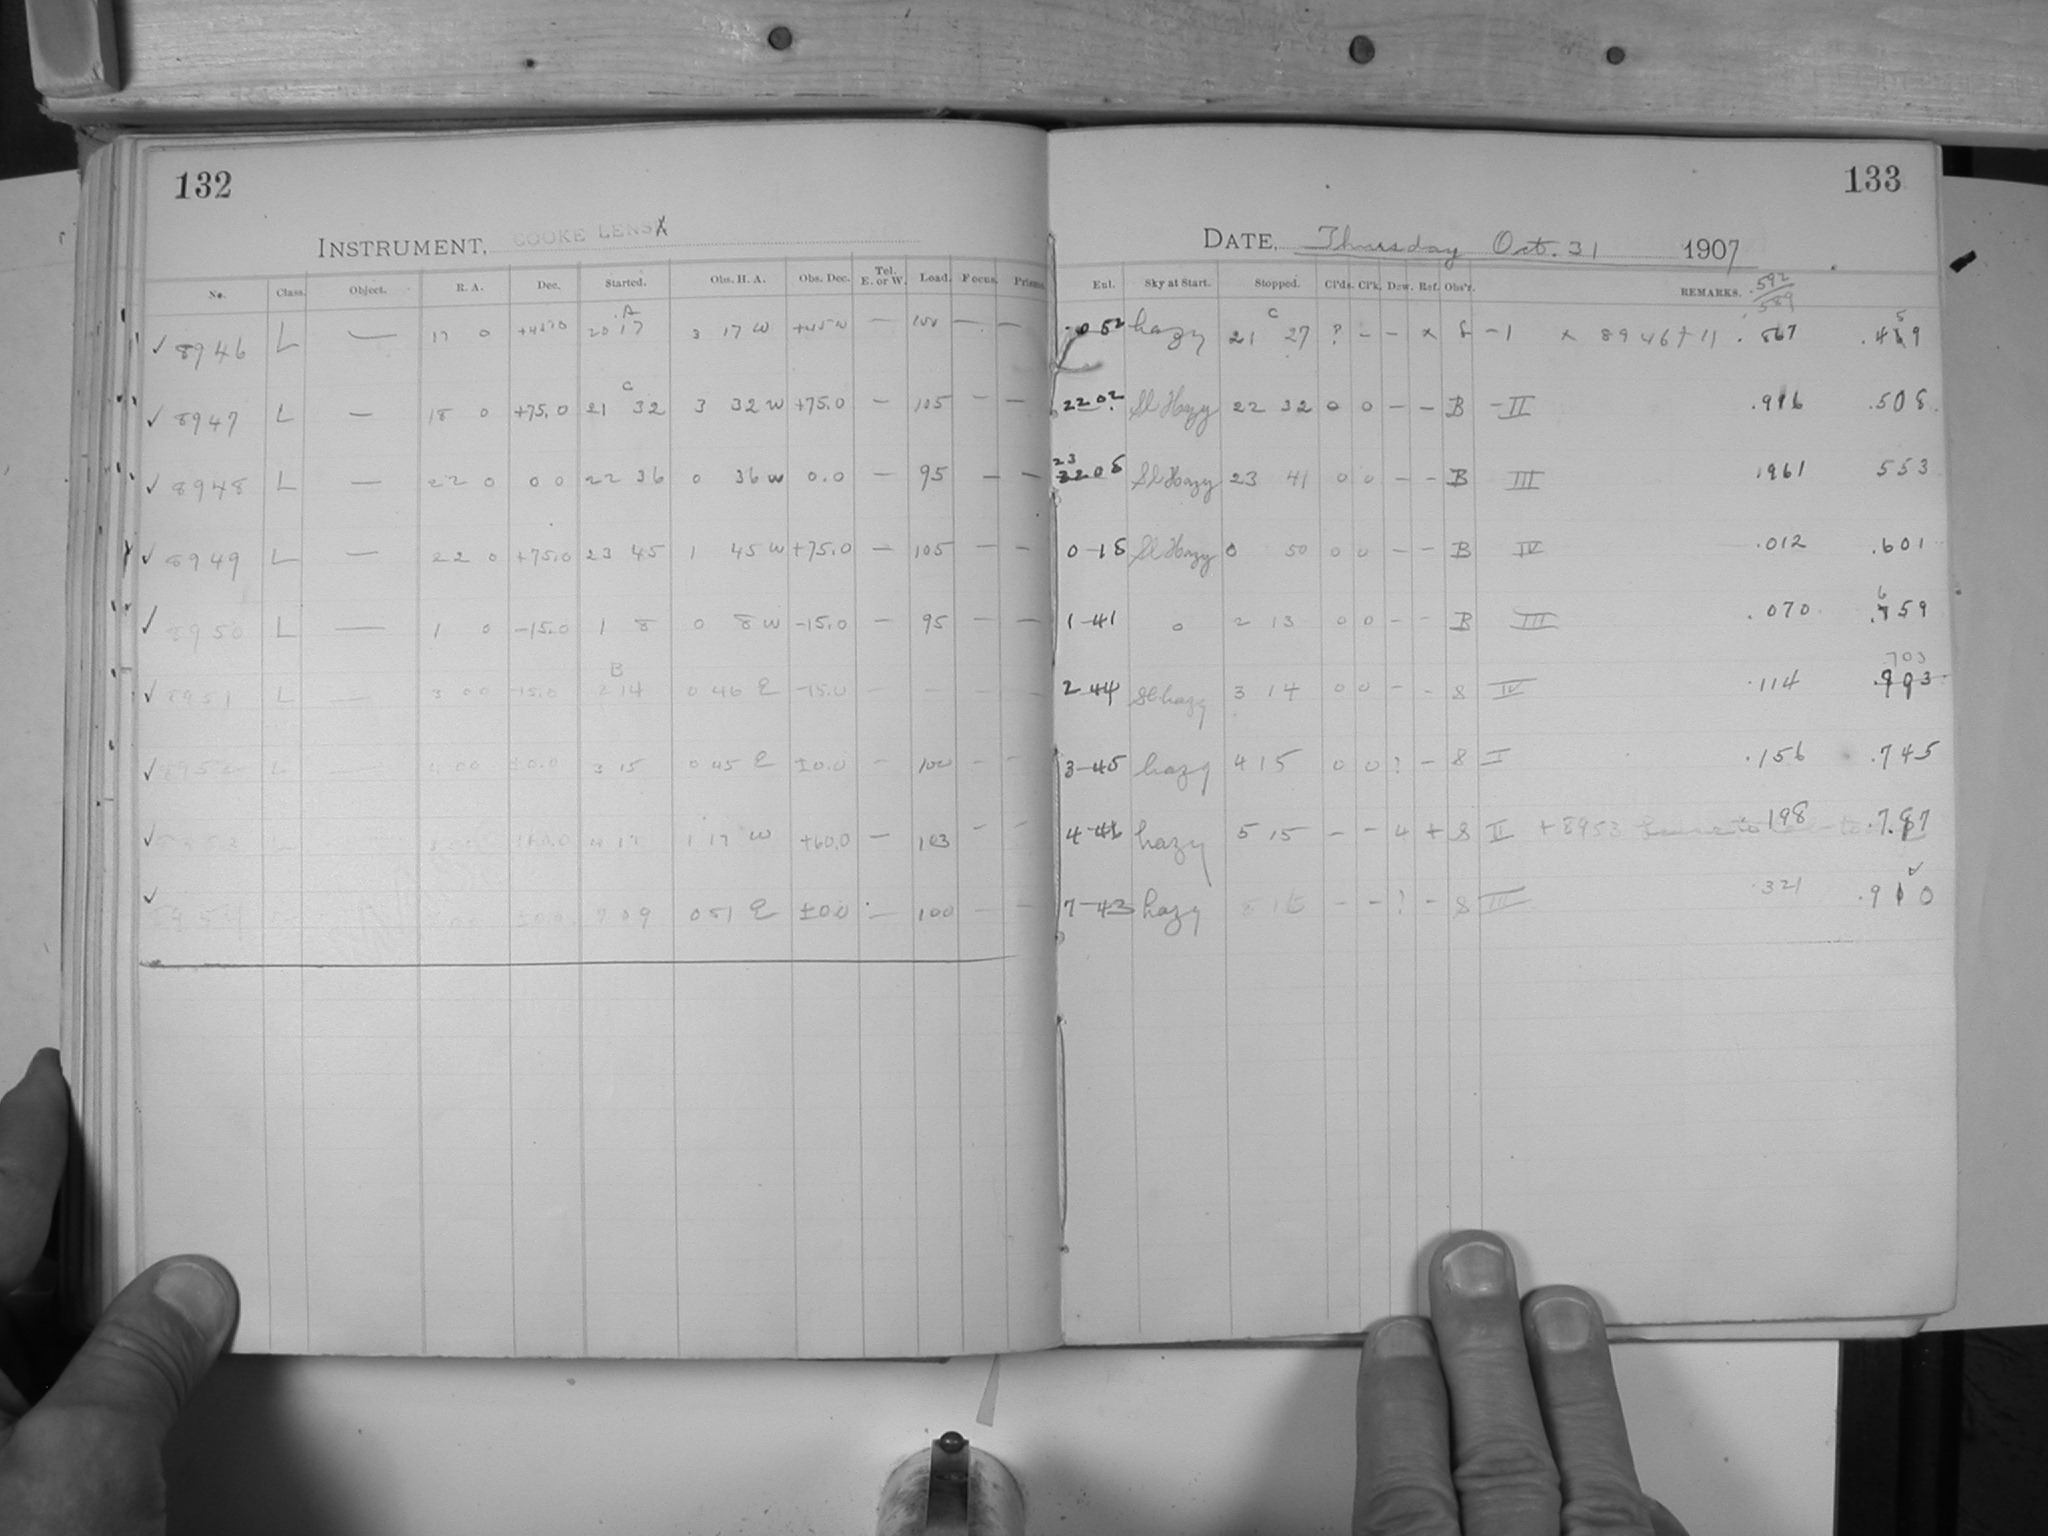 132
INSTRUMENT, COOKE LENS
No. Class. Object. R. A. Dec. Started. Obs. H. A. Obs. Dec. Tel. E. or W. Load. Focus. Prisms.
A
✓ 8946 L — 17 0 20 17 3 17 W — — —
C
✓ 8947 L — 18 0 +75.0 21 32 3 32 W +75.0 — 105 — —
✓ 8948 L — 22 0 0 0 22 36 0 36 W 0.0 — 95 — —
✓ 8949 L — 22 0 +75.0 23 45 1 45 W +75.0 — 105 — —
✓ 8950 L — 1 0 -15.0 1 8 0 8 W -15.0 — 95 — —
B
✓ 8951 L — 3 00 -15.0 2 14 0 46 E -15.0 — — — —
✓ L — ±0.0 3 15 0 45 E ±0.0 — 100 — —
✓ 4 17 1 17 W +60.0 — 103 — —
✓ 7 09 0 51 E ±0.0 — 100 — —
133
DATE, Thursday Oct. 31 1907
Enl. Sky at Start. Stopped. Cl'ds. Cl'k. Dew. Ref. Obs'r. REMARKS. .592
.589
C
hazy 21 27 ? — — × — 1 × 8946 .867
22 02 Sl Hazy 22 32 0 0 — — B — II .916 .508
23 Sl Hazy 23 41 0 0 — — B III .961 553
0-18 Sl Hazy 0 50 0 0 — — B IV .012 .601
1-41 0 2 13 0 0 — — B III .070 .659
703
2-44 Sl hazy 3 14 0 0 — — S IV .114
3-45 hazy 4 15 0 0 ? — S I .156 .745
4-46 hazy 5 15 — — 4 + S II + 8953 .198 .787
7-43 hazy — — ? — S III .321 .910